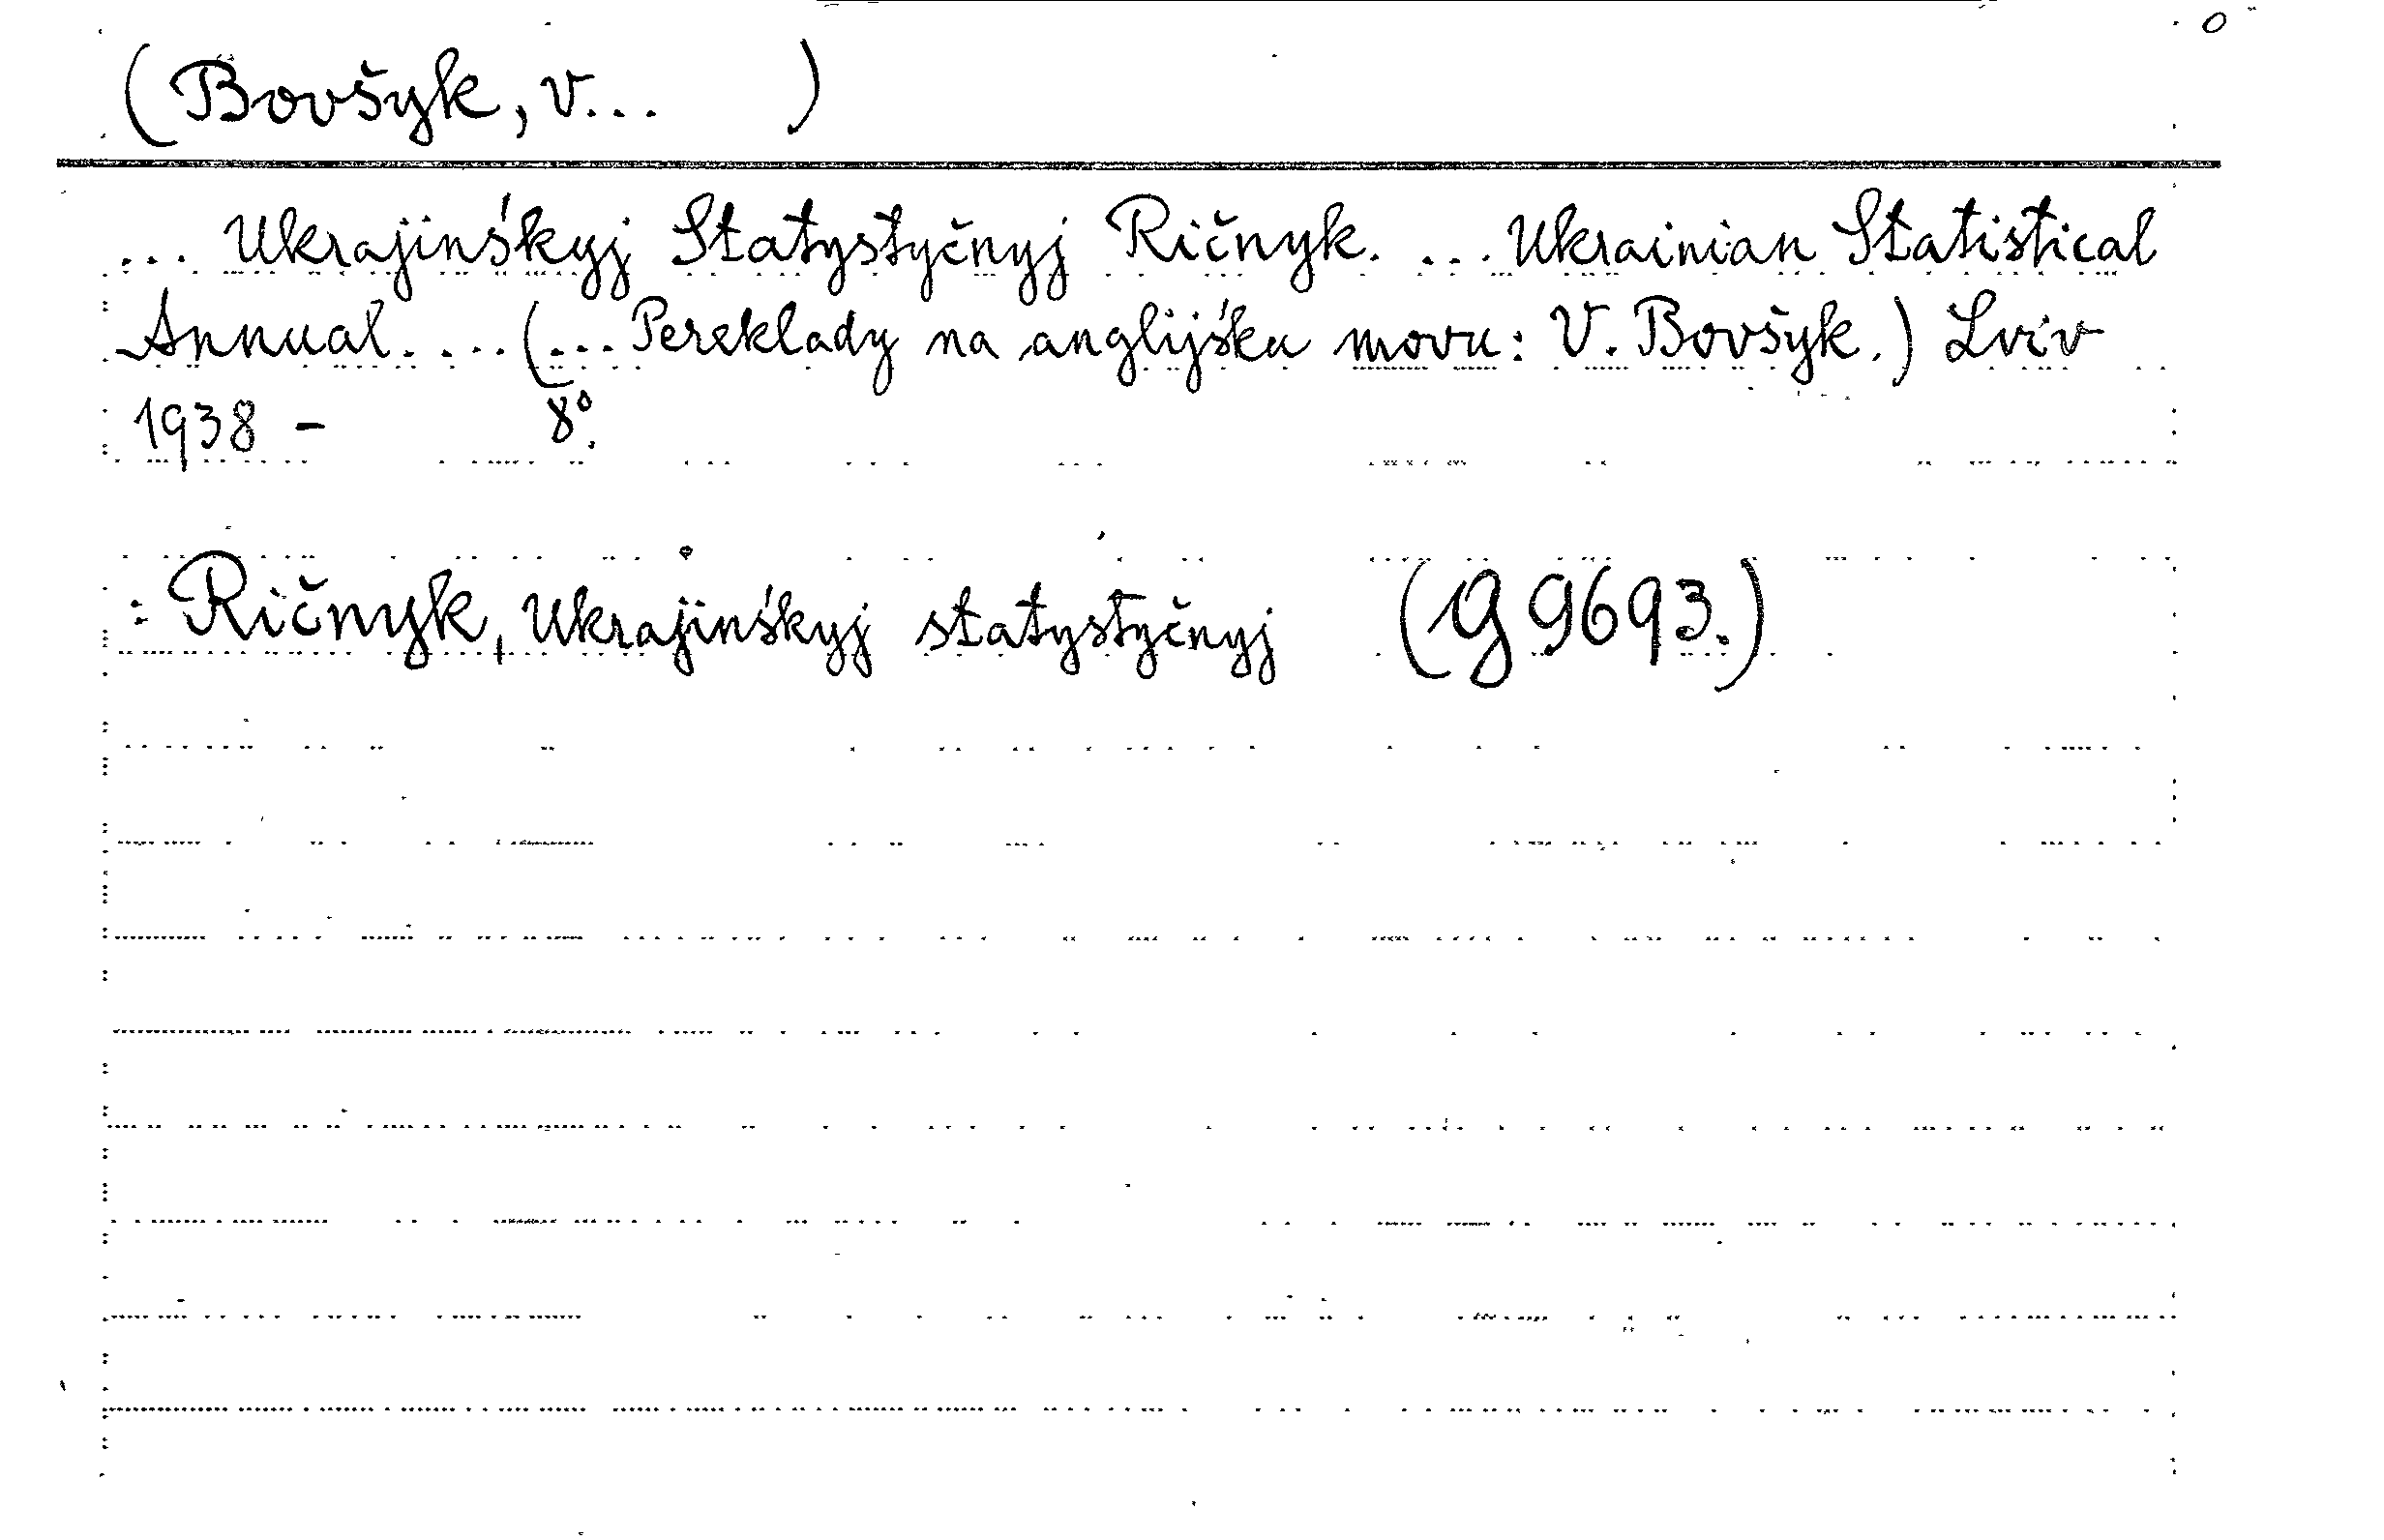 0
(Bovšyk, V... )
... Ukrajinśkyj Statystyčnyj Ričnyk. ... Ukrainian Statistical
Annual. ... (... Pereklady na anglijśku movu: V. Bovšyk.) Lviv
1938 - 8°.
: Ričnyk, Ukrajinśkyj statystyčnyj (G 9693.)